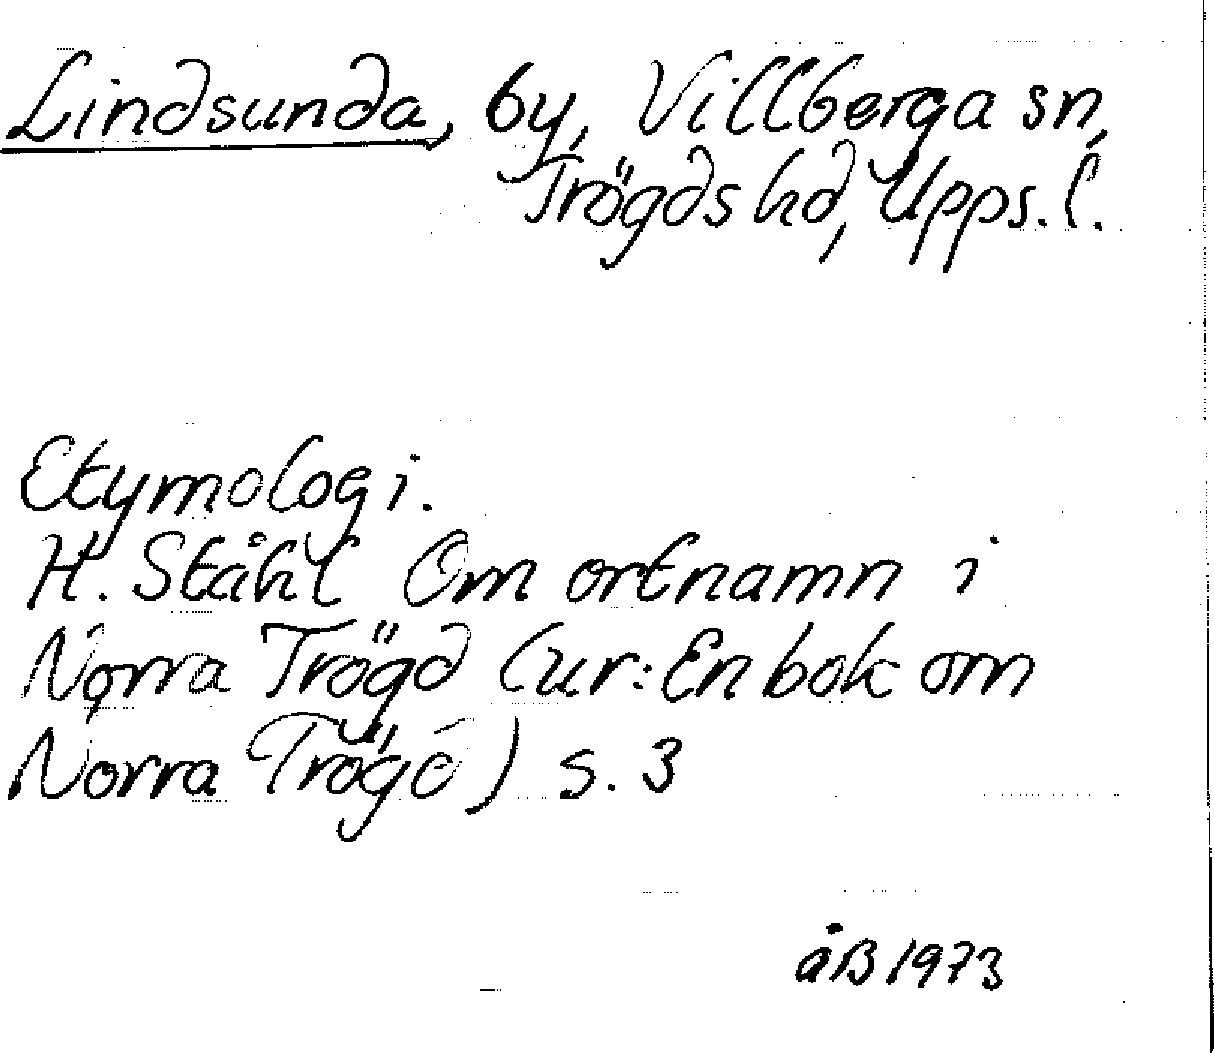 Lindsunda, by, Villberga sn,
Trögds hd, Upps. l.
Etymologi.
H. Ståhl Om ortnamn i
Norra Trögd (ur: En bok om
Norra Trögd) s. 3
åB 1973